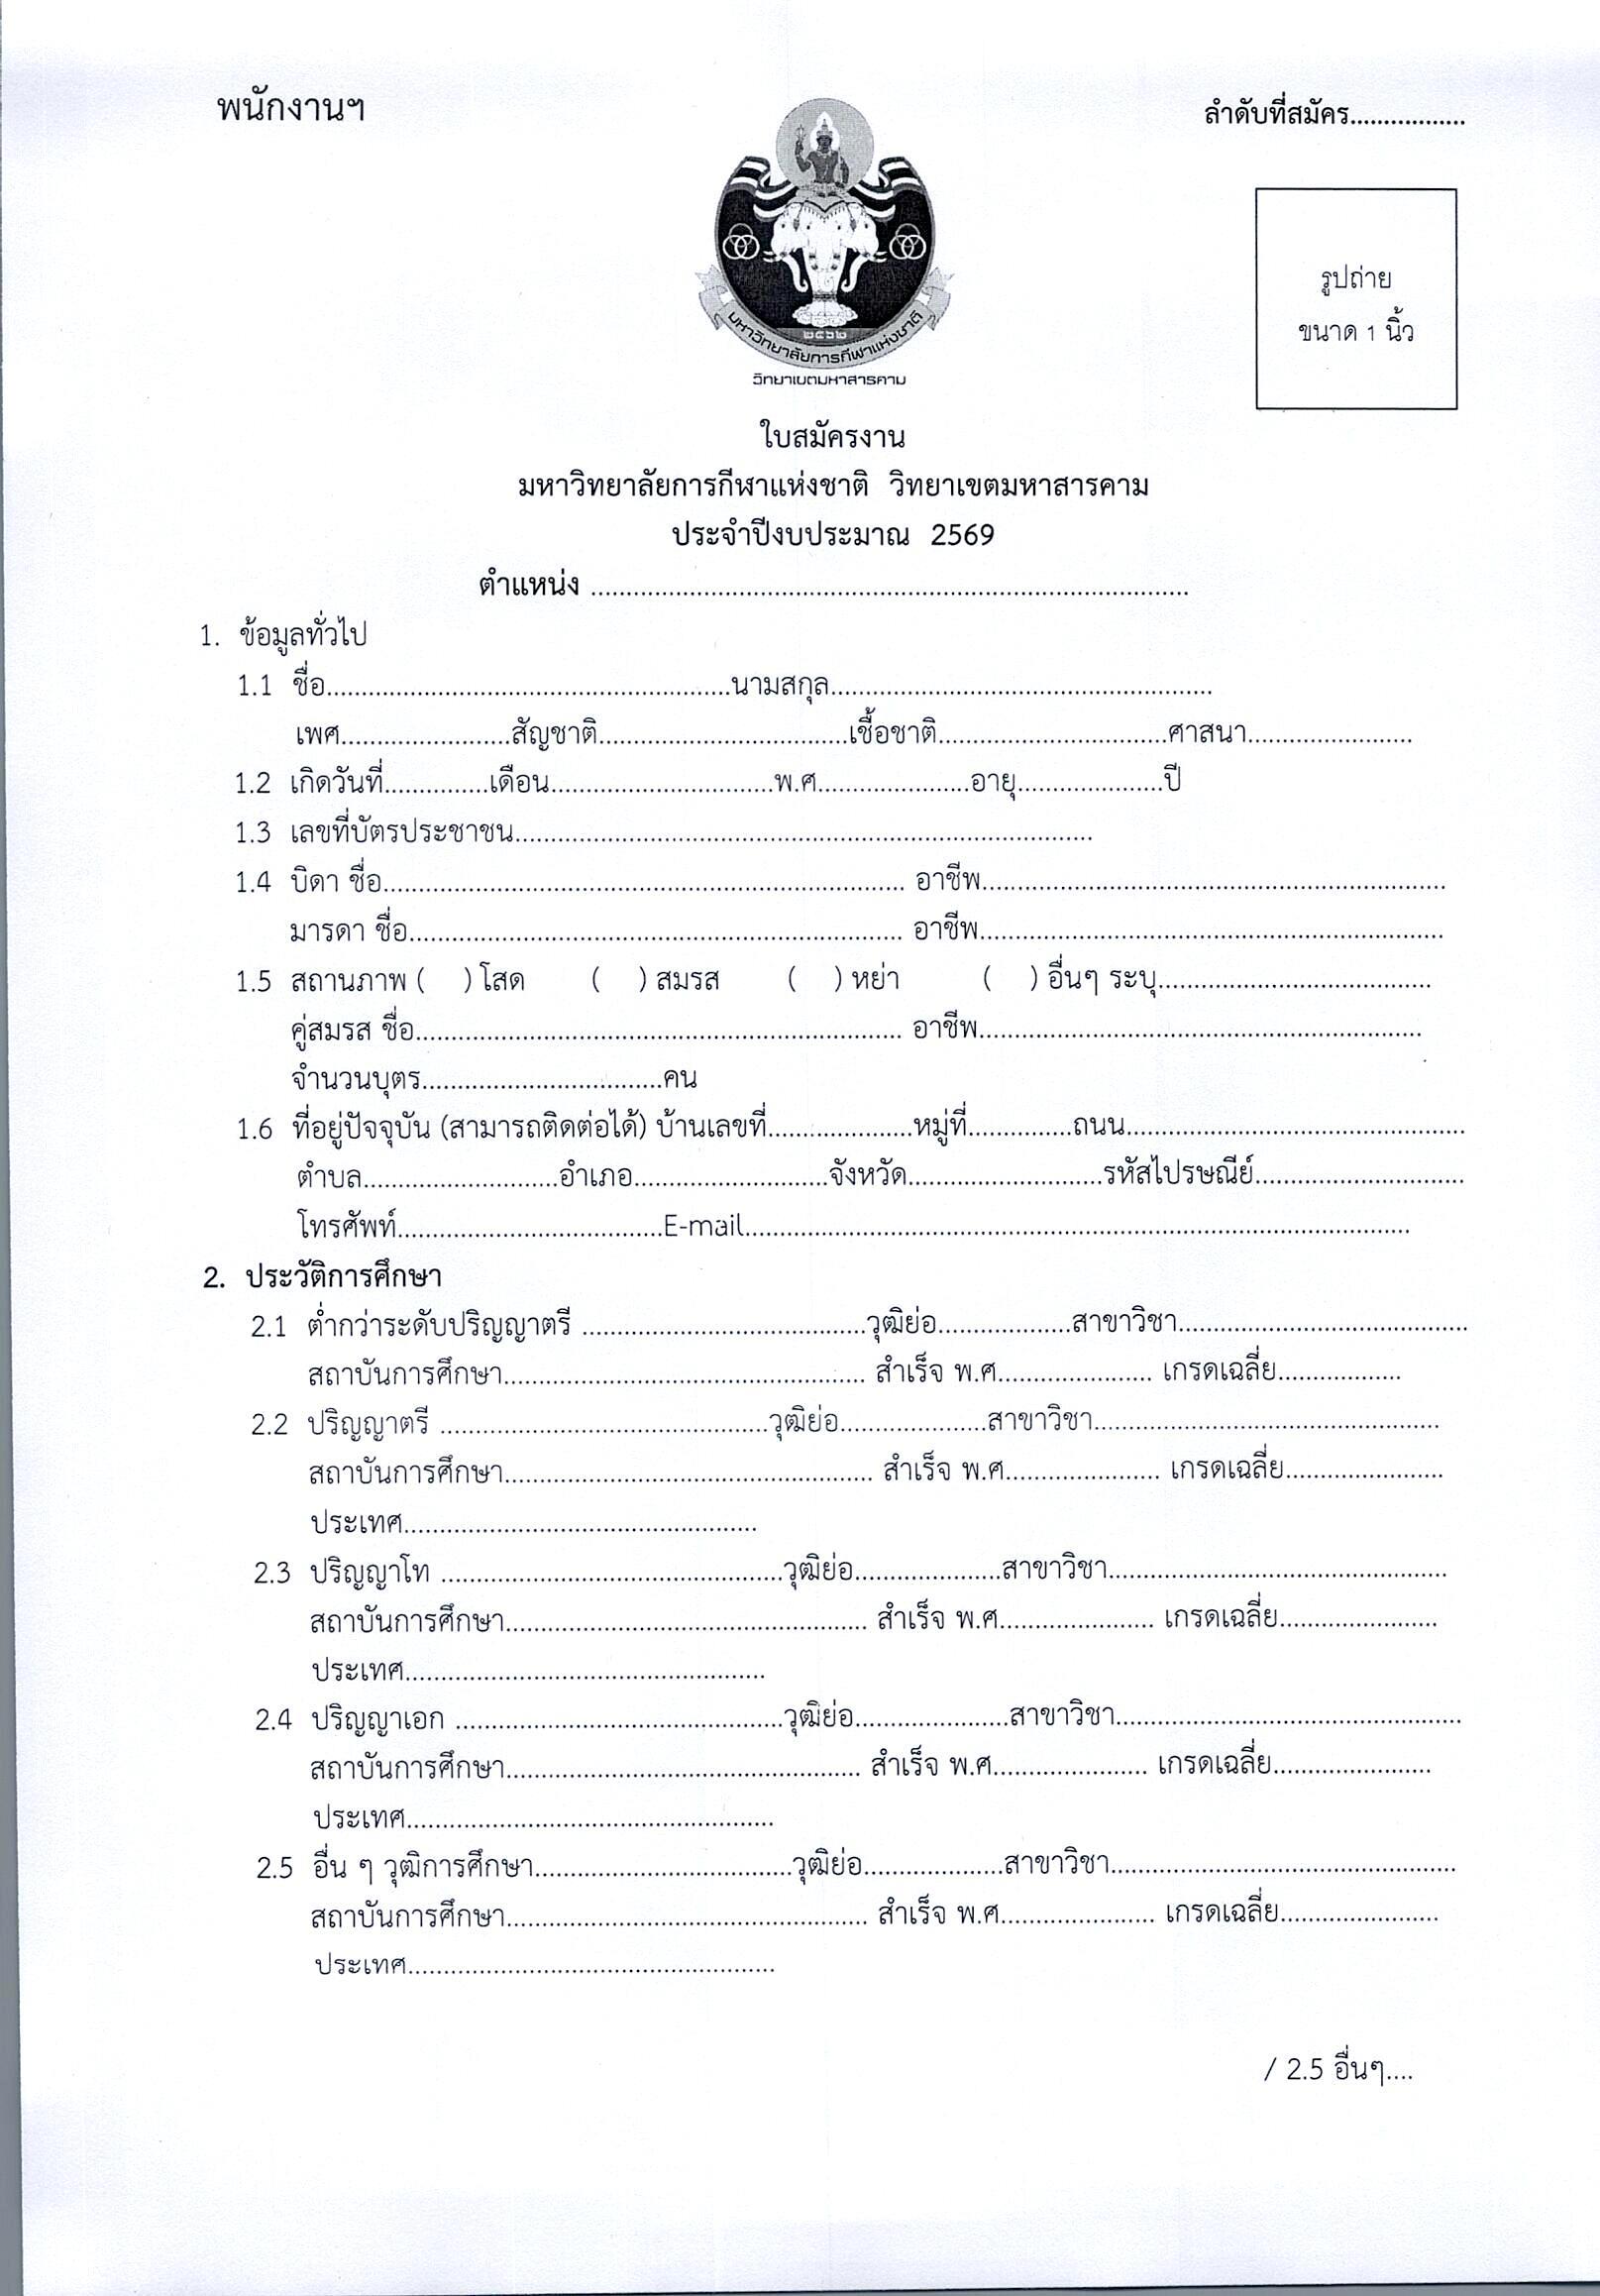 พนักงานฯ
ลำดับที่สมัคร.................
มหาวิทยาลัยการกีฬาแห่งชาติ
๒๕๖๒
วิทยาเขตมหาสารคาม
รูปถ่าย
ขนาด 1 นิ้ว
ใบสมัครงาน
มหาวิทยาลัยการกีฬาแห่งชาติ วิทยาเขตมหาสารคาม
ประจำปีงบประมาณ 2569
ตำแหน่ง .....................................................................................
1. ข้อมูลทั่วไป
1.1 ชื่อ.........................................................นามสกุล......................................................
เพศ........................สัญชาติ...................................เชื้อชาติ................................ศาสนา.......................
1.2 เกิดวันที่...............เดือน...............................พ.ศ.....................อายุ.....................ปี
1.3 เลขที่บัตรประชาชน.................................................................................
1.4 บิดา ชื่อ......................................................................... อาชีพ.................................................................
มารดา ชื่อ..................................................................... อาชีพ.................................................................
1.5 สถานภาพ ( ) โสด ( ) สมรส ( ) หย่า ( ) อื่นๆ ระบุ......................................
คู่สมรส ชื่อ.................................................................... อาชีพ..............................................................
จำนวนบุตร..................................คน
1.6 ที่อยู่ปัจจุบัน (สามารถติดต่อได้) บ้านเลขที่....................หมู่ที่...............ถนน...............................................
ตำบล...........................อำเภอ...........................จังหวัด...........................รหัสไปรษณีย์.............................
โทรศัพท์.....................................E-mail.............................................................................................
2. ประวัติการศึกษา
2.1 ต่ำกว่าระดับปริญญาตรี ........................................วุฒิย่อ...................สาขาวิชา........................................
สถาบันการศึกษา................................................... สำเร็จ พ.ศ...................... เกรดเฉลี่ย.................
2.2 ปริญญาตรี ..............................................วุฒิย่อ.....................สาขาวิชา................................................
สถาบันการศึกษา.................................................... สำเร็จ พ.ศ...................... เกรดเฉลี่ย......................
ประเทศ.................................................
2.3 ปริญญาโท ................................................วุฒิย่อ.....................สาขาวิชา...............................................
สถาบันการศึกษา................................................... สำเร็จ พ.ศ...................... เกรดเฉลี่ย......................
ประเทศ..................................................
2.4 ปริญญาเอก ..............................................วุฒิย่อ......................สาขาวิชา................................................
สถาบันการศึกษา.................................................. สำเร็จ พ.ศ...................... เกรดเฉลี่ย......................
ประเทศ...................................................
2.5 อื่น ๆ วุฒิการศึกษา....................................วุฒิย่อ....................สาขาวิชา................................................
สถาบันการศึกษา................................................... สำเร็จ พ.ศ...................... เกรดเฉลี่ย......................
ประเทศ...................................................
/ 2.5 อื่นๆ....